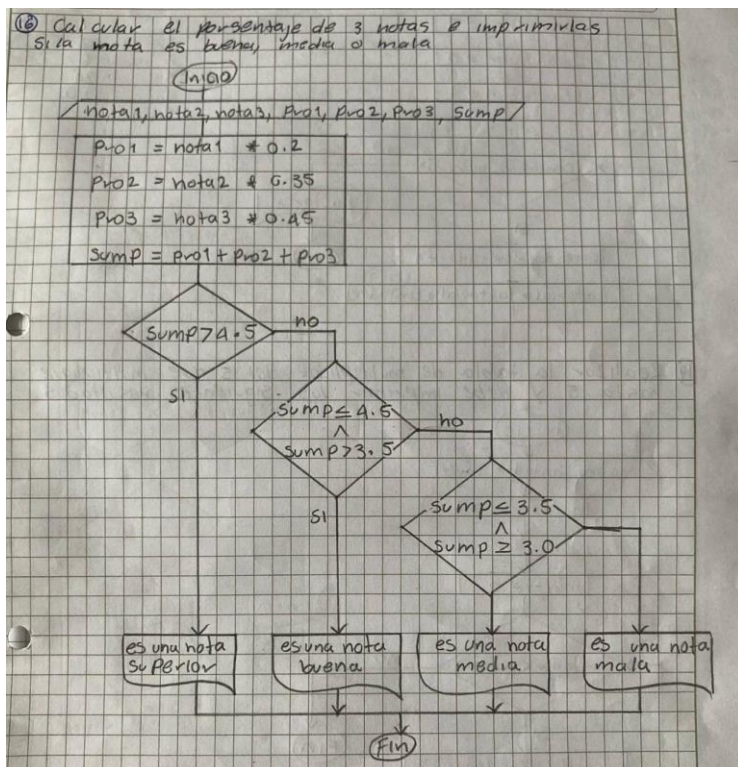 16 Calcular el porsentaje de 3 notas e imprimirlas
si la nota es buena, media o mala
Inicio
nota1, nota2, nota3, Pro1, Pro2, Pro3, Sump
Pro1 = nota1 * 0.2
Pro2 = nota2 * 0.35
Pro3 = nota3 * 0.45
Sump = pro1 + pro2 + pro3
Sump > 4.5
no
SI
Sump ≤ 4.5
^
Sump > 3.5
no
SI
Sump ≤ 3.5
^
Sump ≥ 3.0
es una nota
superior
es una nota
buena
es una nota
media
es una nota
mala
Fin